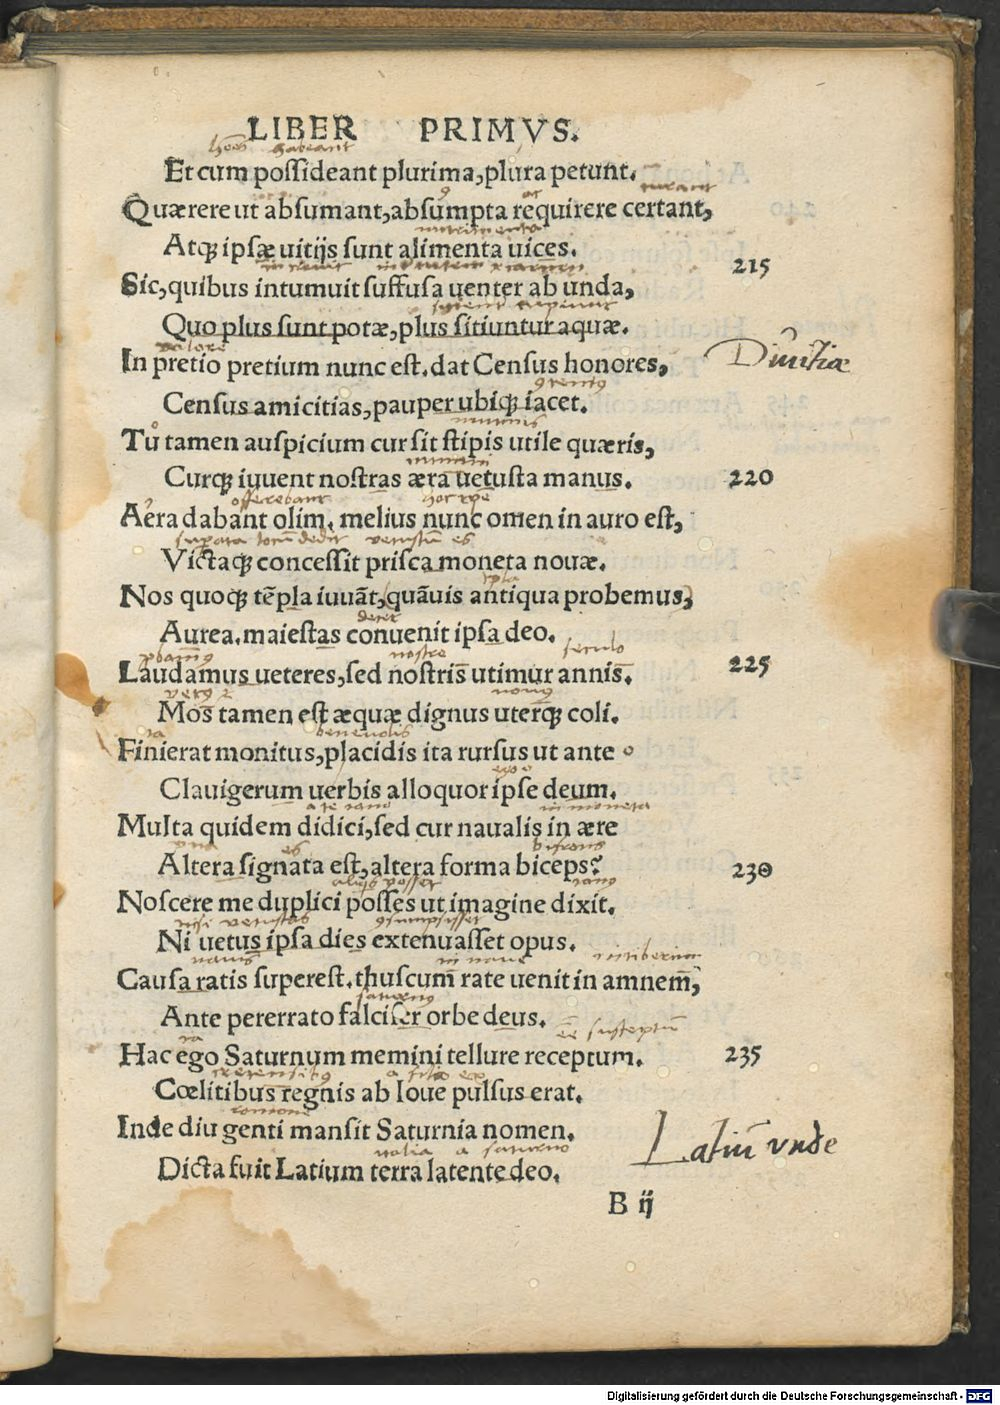 LIBER PRIMVS.
habeant
Et cum possideant plurima, plura petunt.
curant
Quærere ut absumant, absumpta requirere certant,
nutrimenta
Atqꝫ ipsæ uitijs sunt alimenta uices.
215
Sic, quibus intumuit suffusa uenter ab unda,
Quo plus sunt potæ, plus sitiuntur aquæ.
valore
In pretio pretium nunc est. dat Census honores,
Diuitiæ
Census amicitias, pauper ubiqꝫ iacet.
Tu tamen auspicium cur sit stipis utile quæris,
Curqꝫ iuuent nostras æra uetusta manus.
220
offerebant
Aera dabant olim. melius nunc omen in auro est,
Victaqꝫ concessit prisca moneta nouæ.
Nos quoqꝫ tēpla iuuāt, (quāuis antiqua probemus)
decet
Aurea. maiestas conuenit ipsa deo.
nostro seculo
Laudamus ueteres, sed nostris utimur annis.
225
Mos tamen est æquæ dignus uterqꝫ coli.
beneuolis
Finierat monitus, placidis ita rursus ut ante
Clauigerum uerbis alloquor ipse deum.
a te iano in moneta
Multa quidem didici, sed cur naualis in ære
bifrons
Altera signata est, altera forma biceps?
230
posset ianus
Noscere me duplici posses ut imagine dixit.
nisi vetustas
Ni uetus ipsa dies extenuasset opus.
nauis in naue
Causa ratis superest. thuscum rate uenit in amnem,
saturnus
Ante pererrato falcifer orbe deus.
susceptū
Hac ego Saturnum memini tellure receptum.
235
Cœlitibus regnis ab Ioue pulsus erat.
Inde diu genti mansit Saturnia nomen.
Latiū vnde
italia a saturno
Dicta fuit Latium terra latente deo.
B ij
Digitalisierung gefördert durch die Deutsche Forschungsgemeinschaft - DFG